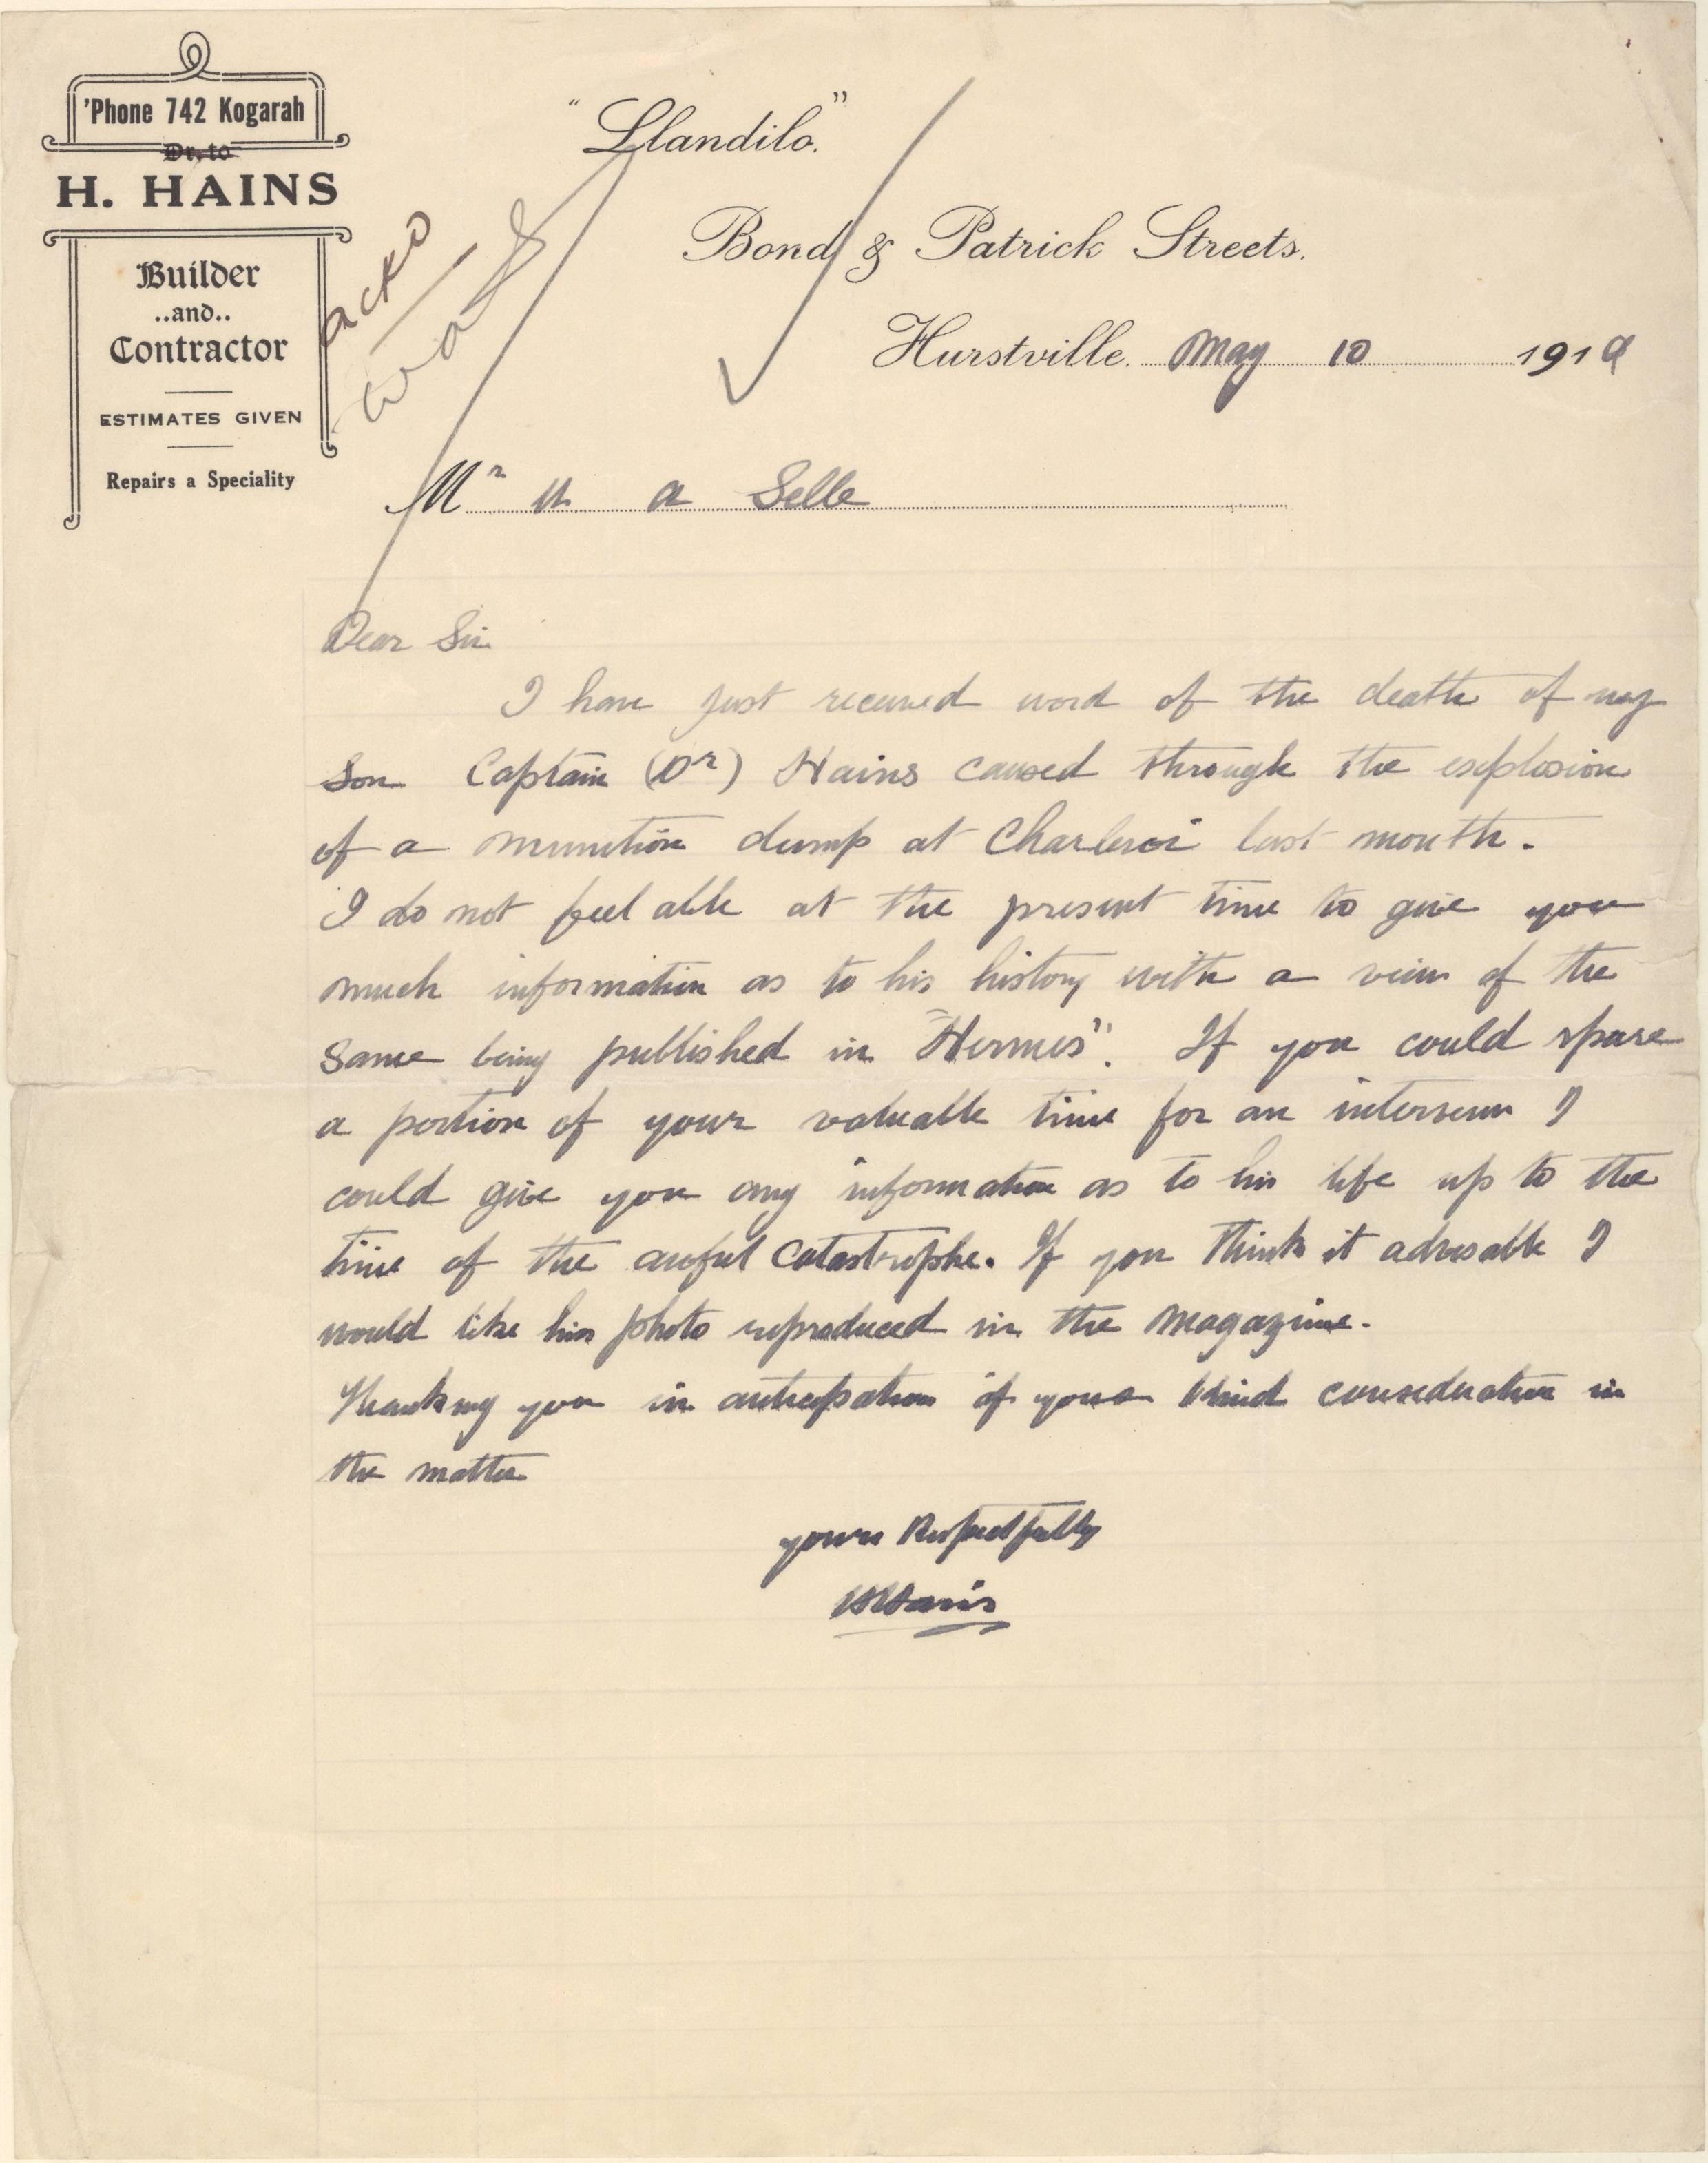 'Phone 742 Kogarah
Dr. to
H. HAINS
Builder
..and..
Contractor
ESTIMATES GIVEN
Repairs a Speciality
ackd
"Llandilo."
Bond & Patrick Streets.
Hurstville. May 10 1919
Mr a Selle
Dear Sir
I have just received word of the death of my
Son Captain (Dr) Hains caused through the explosion
of a munition dump at Charleroi last month.
I do not feel able at the present time to give you
much information as to his history with a view of the
same being published in "Hermes". If you could spare
a portion of your valuable time for an interview I
could give you any information as to his life up to the
time of the awful catastrophe. If you think it advisable I
would like his photo reproduced in the magazine.
Thanking you in anticipation of your kind consideration in
the matter
yours Respectfully
H Hains